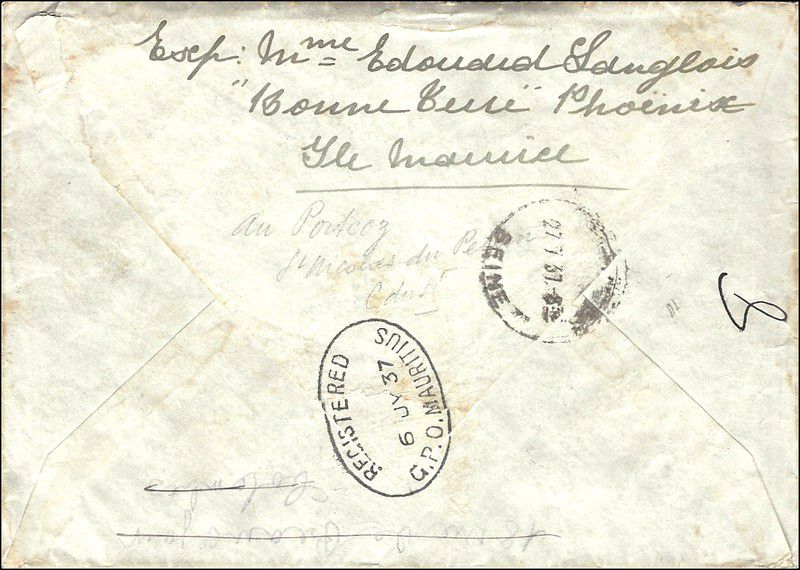 Exp: Mme Edouard Langlois
"Bonne Terre" Phoenix
Ile Maurice
au Portcoz
St Nicolas du Pelem
Cdu
27 7 37
REGISTERED
6 JY 37
G.P.O. MAURITIUS
8